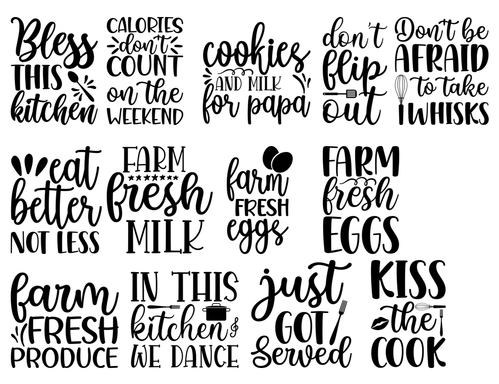 Bless
THIS
kitchen
CALORIES
don't
COUNT
on the
WEEKEND
cookies
AND MILK
for papa
don't
flip
out
Don't be
AFRAID
to take
WHISKS
eat
better
NOT LESS
FARM
fresh
MILK
farm
FRESH
eggs
FARM
fresh
EGGS
farm
FRESH
PRODUCE
IN THIS
kitchen
WE DANCE
just
GOT
Served
KISS
the
COOK